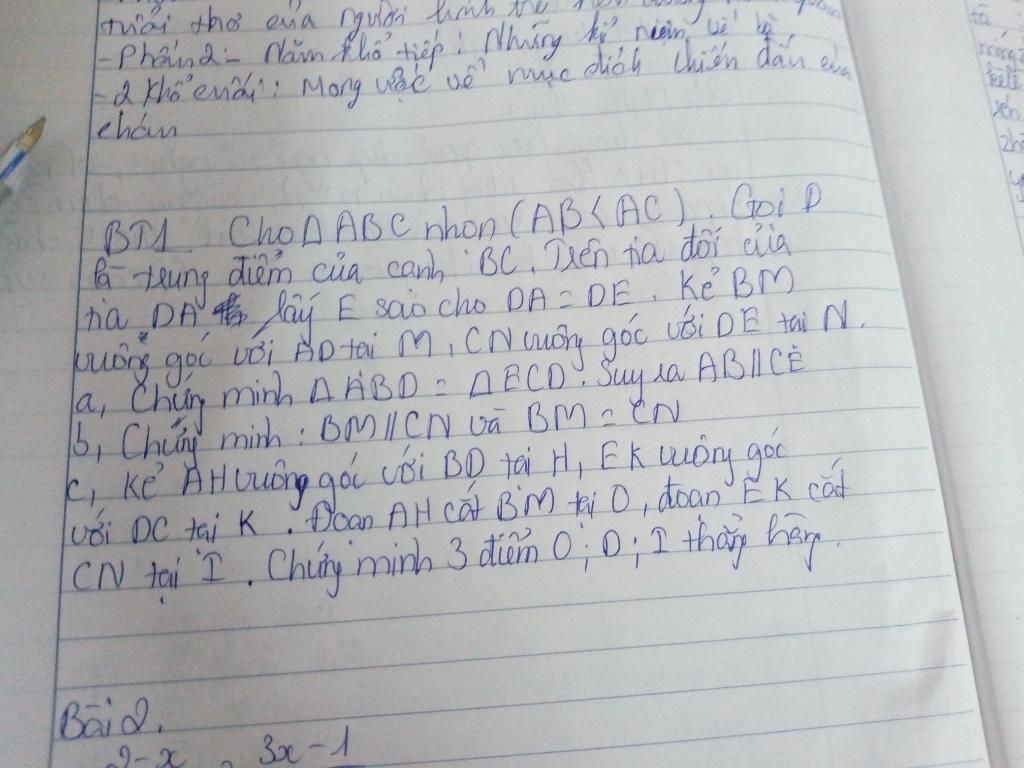 tuổi thơ của người lính trẻ
- Phần 2 - Năm khổ tiếp : Những kỉ niệm về bà
- 2 khổ cuối : Mong ước về mục đích chiến đấu của
cháu
BT1. Cho Δ ABC nhọn (AB < AC). Gọi D
là trung điểm của cạnh BC. Trên tia đối của
tia DA lấy E sao cho DA = DE. Kẻ BM
vuông góc với AD tại M, CN vuông góc với DE tại N.
a, Chứng minh Δ ABD = Δ ECD. Suy ra AB // CE
b, Chứng minh : BM // CN và BM = CN
c, Kẻ AH vuông góc với BD tại H, EK vuông góc
với DC tại K. Đoạn AH cắt BM tại O, đoạn EK cắt
CN tại I. Chứng minh 3 điểm O ; D ; I thẳng hàng.
Bài 2.
2-x = 3x-1